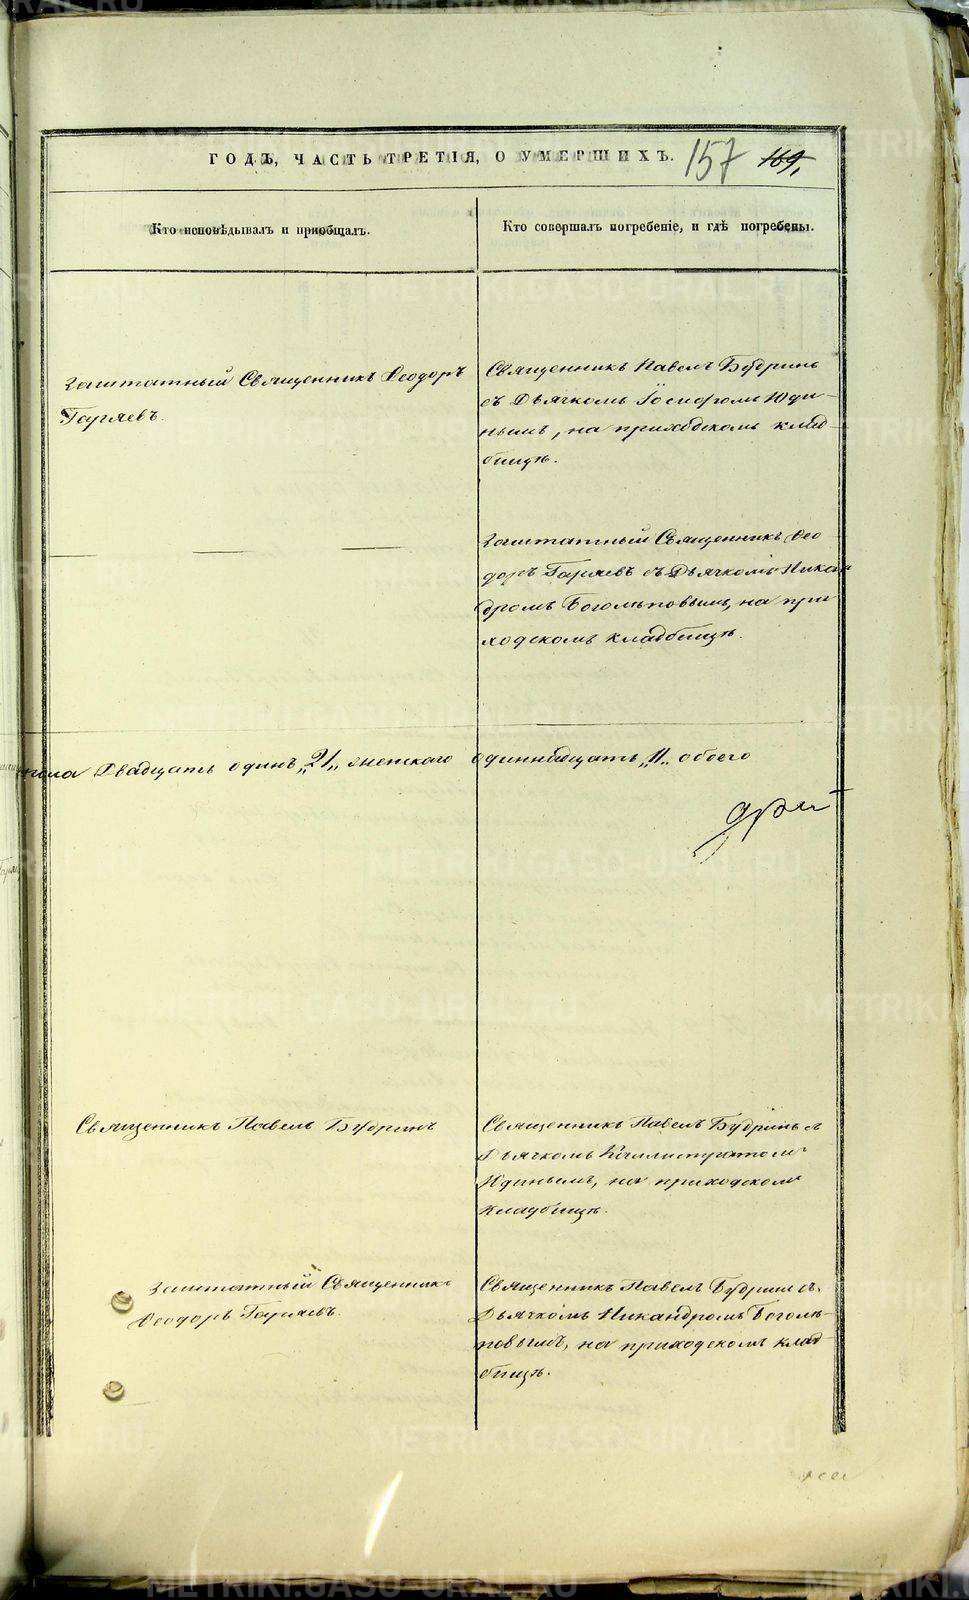 ГОДЪ, ЧАСТЬ ТРЕТІЯ, О УМЕРШИХЪ. 157 169,
Кто исповѣдывалъ и приобщалъ.
Кто совершалъ погребеніе, и гдѣ погребены.
Заштатный Священникъ Ѳеодоръ
Гаряевъ.
Священникъ Павелъ Будринъ
съ Дьячкомъ Іосифомъ Юди-
нымъ, на приходскомъ клад-
бищѣ.
Заштатный Священникъ Ѳео
доръ Гаряевъ съ Дьячкомъ Никан
дромъ Боголѣповымъ, на при
ходскомъ кладбищѣ.
пола Двадцать одинъ „21„ женскаго одиннадцать „11„ обоего
Священникъ Павелъ Будринъ
Священникъ Павелъ Будринъ съ
Дьячкомъ Каллистратомъ
Юдинымъ, на приходскомъ
кладбищѣ.
Заштатный Священникъ
Ѳеодоръ Гаряевъ.
Священникъ Павелъ Будринъ съ
Дьячкомъ Никандромъ Боголѣ-
повымъ, на приходскомъ клад-
бищѣ.
METRIKI.GASO-URAL.RU